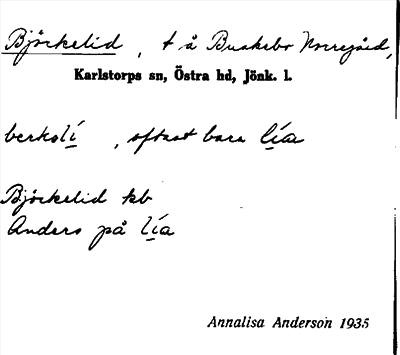 Björkelid, t å Buskebo Norregård,
Karlstorps sn, Östra hd, Jönk. l.
berkəlí, oftast bara lía
Björkelid kb
Anders på lía
Annalisa Anderson 1935